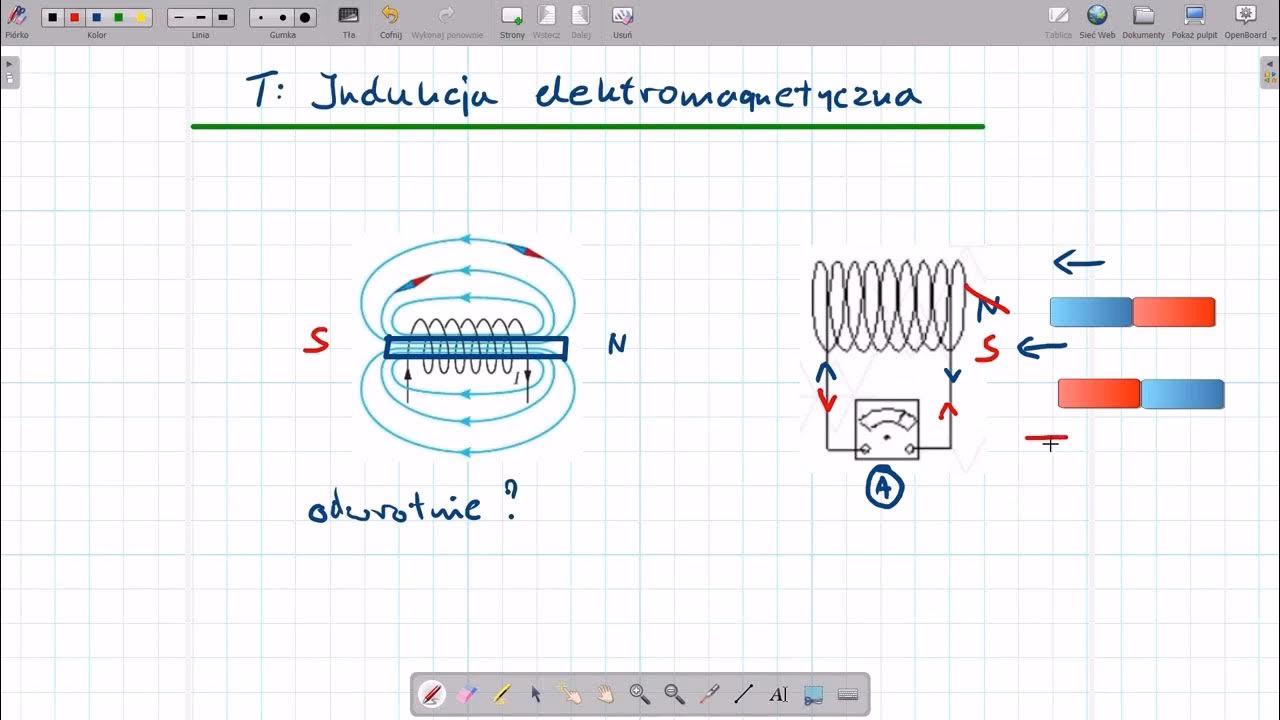 Piórko Kolor Linia Gumka Tła Cofnij Wykonaj ponownie Strony Wstecz Dalej Usuń Tablica Sieć Web Dokumenty Pokaż pulpit OpenBoard
T: Indukcja elektromagnetyczna
S N
I
odwrotnie ?
N
S
A
AI